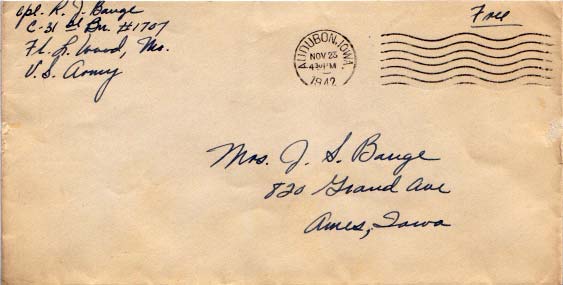 Cpl. R. J. Bauge
C-31 st Bn. #1707
Ft. L. Wood, Mo.
U.S. Army
Free
AUDUBON, IOWA.
NOV 23
4 30 PM
1942
Mrs. J. S. Bauge
820 Grand Ave
Ames, Iowa